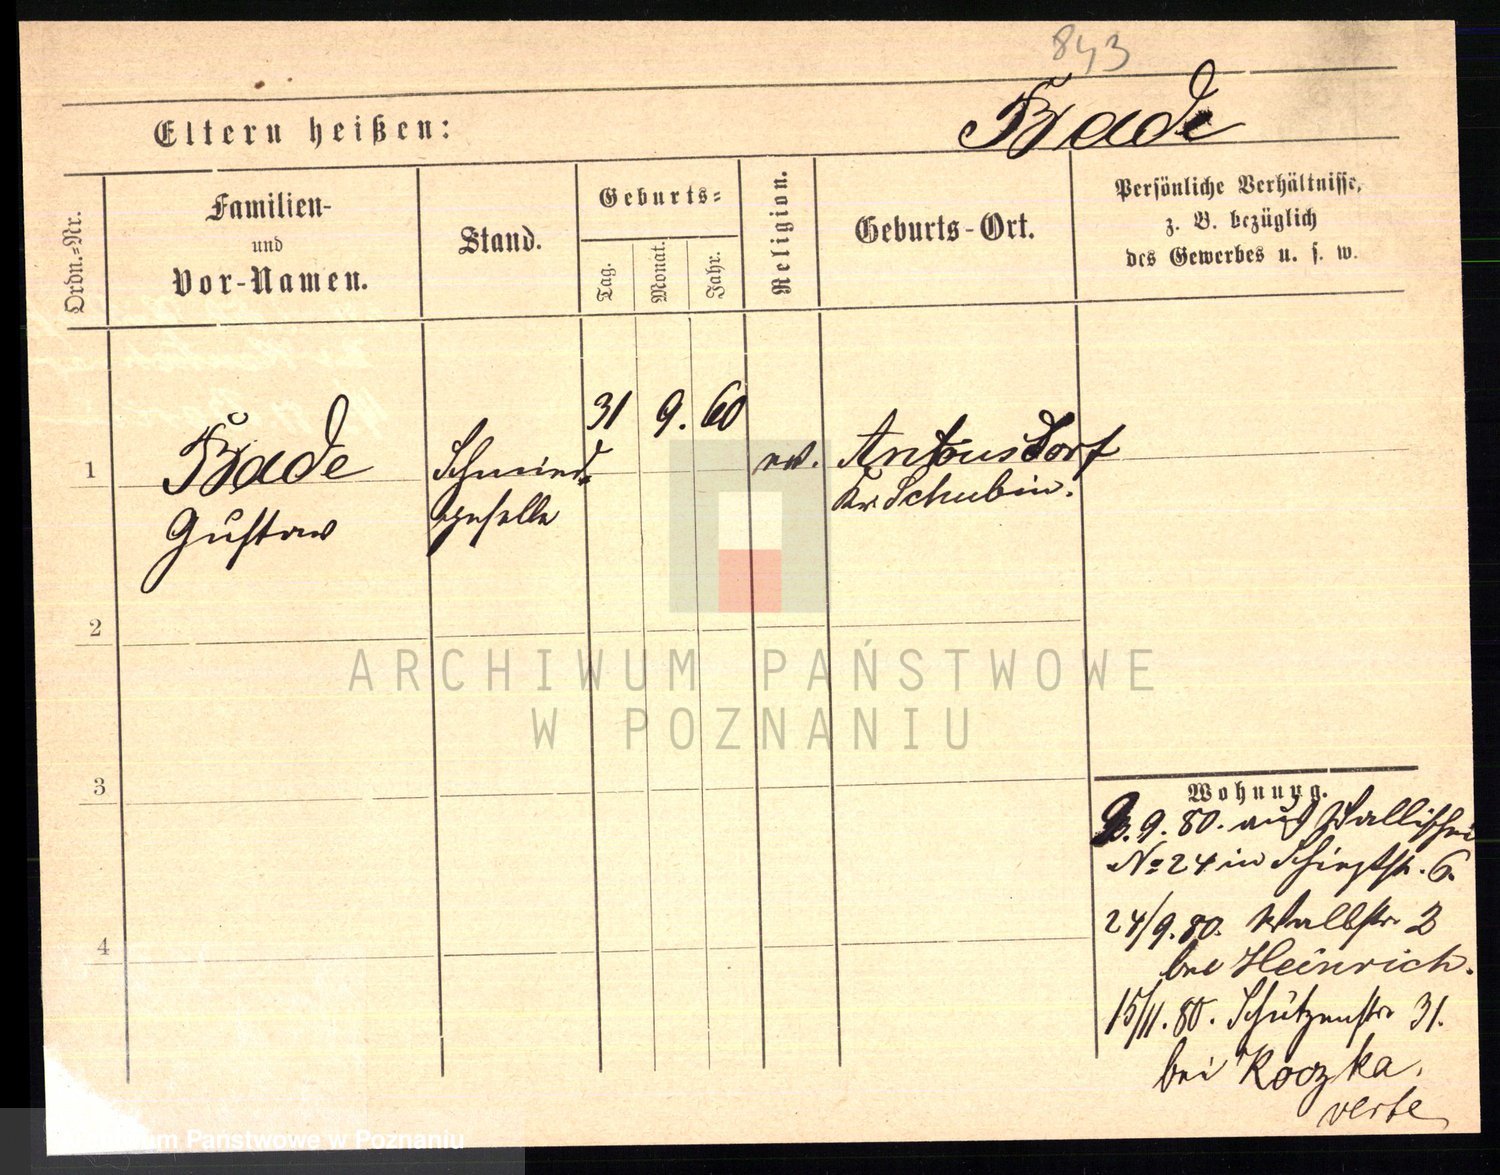 843
Eltern heißen:
Bade
Ordn.-Nr.
Familien-
und
Vor-Namen.
Stand.
Geburts-
Tag.
Monat.
Jahr.
Religion.
Geburts-Ort.
Persönliche Verhältnisse,
z. B. bezüglich
des Gewerbes u. s. w.
1
Bade
Gustav
Schmied-
geselle
31
9.
60
ev.
Antonsdorf
Kr. Schubin.
2
3
4
Wohnung.
3.9.80. aus Wallischei
No 24 in 6.
24/9.80. Wallstr. 2
bei Heinrich.
15/11.80. Schützenstr 31.
bei Koczka.
verte
ARCHIWUM PAŃSTWOWE
W POZNANIU
Archiwum Państwowe w Poznaniu